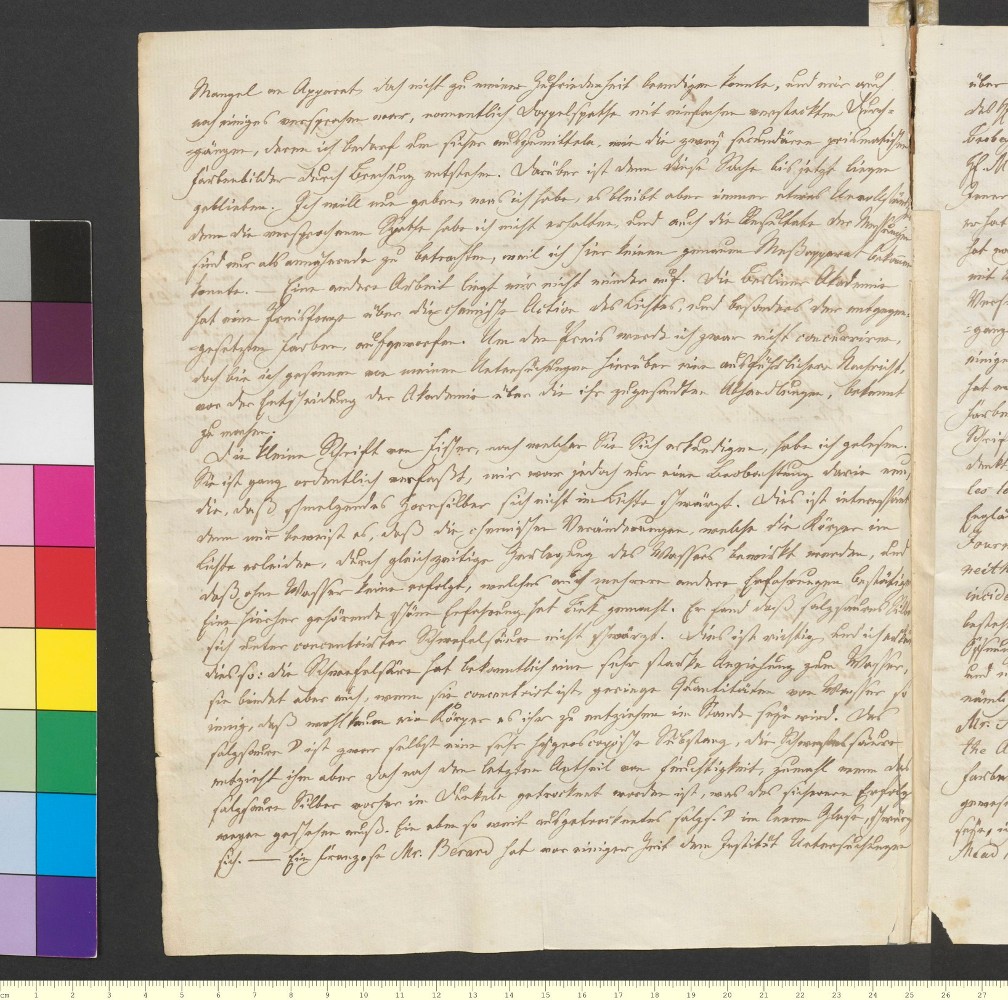 Mangel an Apparat, doch nicht zu meiner Zufriedenheit beendigen konnte, und mir auch
noch einiges versprochen war, namentlich Doppelspathe mit einfachen versteckten Durch-
-gängen, deren ich bedarf um sicher auszumitteln, wie die zwey secundären prismatischen
Farbenbilder durch Brechung entstehen. Darüber ist denn diese Sache bis jetzt liegen
geblieben. Ich will nun geben, was ich habe, es bleibt aber immer etwas
denn die versprochenen Spathe habe ich nicht erhalten, und auch die Resultate der Messungen
sind nur als annähernde zu betrachten, weil ich hier keinen genauen Meßapparat bekommen
konnte. — Eine andere Arbeit liegt mir nicht minder auf. Die Berliner Akademie
hat eine Preisfrage über die chemische Action des Lichtes, und besonders der entgegen-
-gesetzten Farben, aufgeworfen. Um den Preis werde ich zwar nicht concurriren,
doch bin ich gesonnen von meinen Untersuchungen hierüber eine ausführlichere Nachricht,
vor der Entscheidung der Akademie über die ihr zugesandten Abhandlungen, bekannt
zu machen.
Die kleine Schrift von Fischer, nach welcher Sie Sich erkundigen, habe ich gelesen.
Sie ist ganz ordentlich verfaßt, mir war jedoch nur eine Beobachtung darin neu,
die, daß schmelzendes Hornsilber sich nicht im Lichte schwärzt. Dies ist interessant
denn mir beweist es, daß die chemischen Veränderungen, welche die Körper im
Lichte erleiden, durch gleichzeitige Zerlegung des Wassers bewirkt werden, und
daß ohne Wasser keine erfolgt, welches auch mehrere andere Erfahrungen bestätigen
Eine hierher gehörende schöne Erfahrung hat gemacht. Er fand daß salzsaures Silber
sich unter concentrirter Schwefelsäure nicht schwärzt. Dies ist richtig, und ich
dies so: die Schwefelsäure hat bekanntlich eine sehr starke Anziehung zum Wasser,
sie bindet aber auch, wenn sie concentrirt ist, geringe Quantitäten von Wasser so
innig, daß wohl kaum ein Körper es ihr zu entziehen im Stande seyn wird. Das
salzsaure ☽ ist zwar selbst eine sehr hygroscopische Substanz, die Schwefelsäure
entzieht ihm aber doch noch den letzten Antheil von Feuchtigkeit, zumahl wenn das
salzsaure Silber vorher im Dunkeln getrocknet worden ist, was des sicheren Erfolgs
wegen geschehen muß. Ein eben so weit ausgetrocknetes salzs. ☽ im leeren Glase, schwärzt
sich. — Ein Franzose Mr. Berard hat vor einiger Zeit dem Institut Untersuchungen
über
hat
mit
einiger
hat
les
Journ
neith
und
Mr.
the
Mead